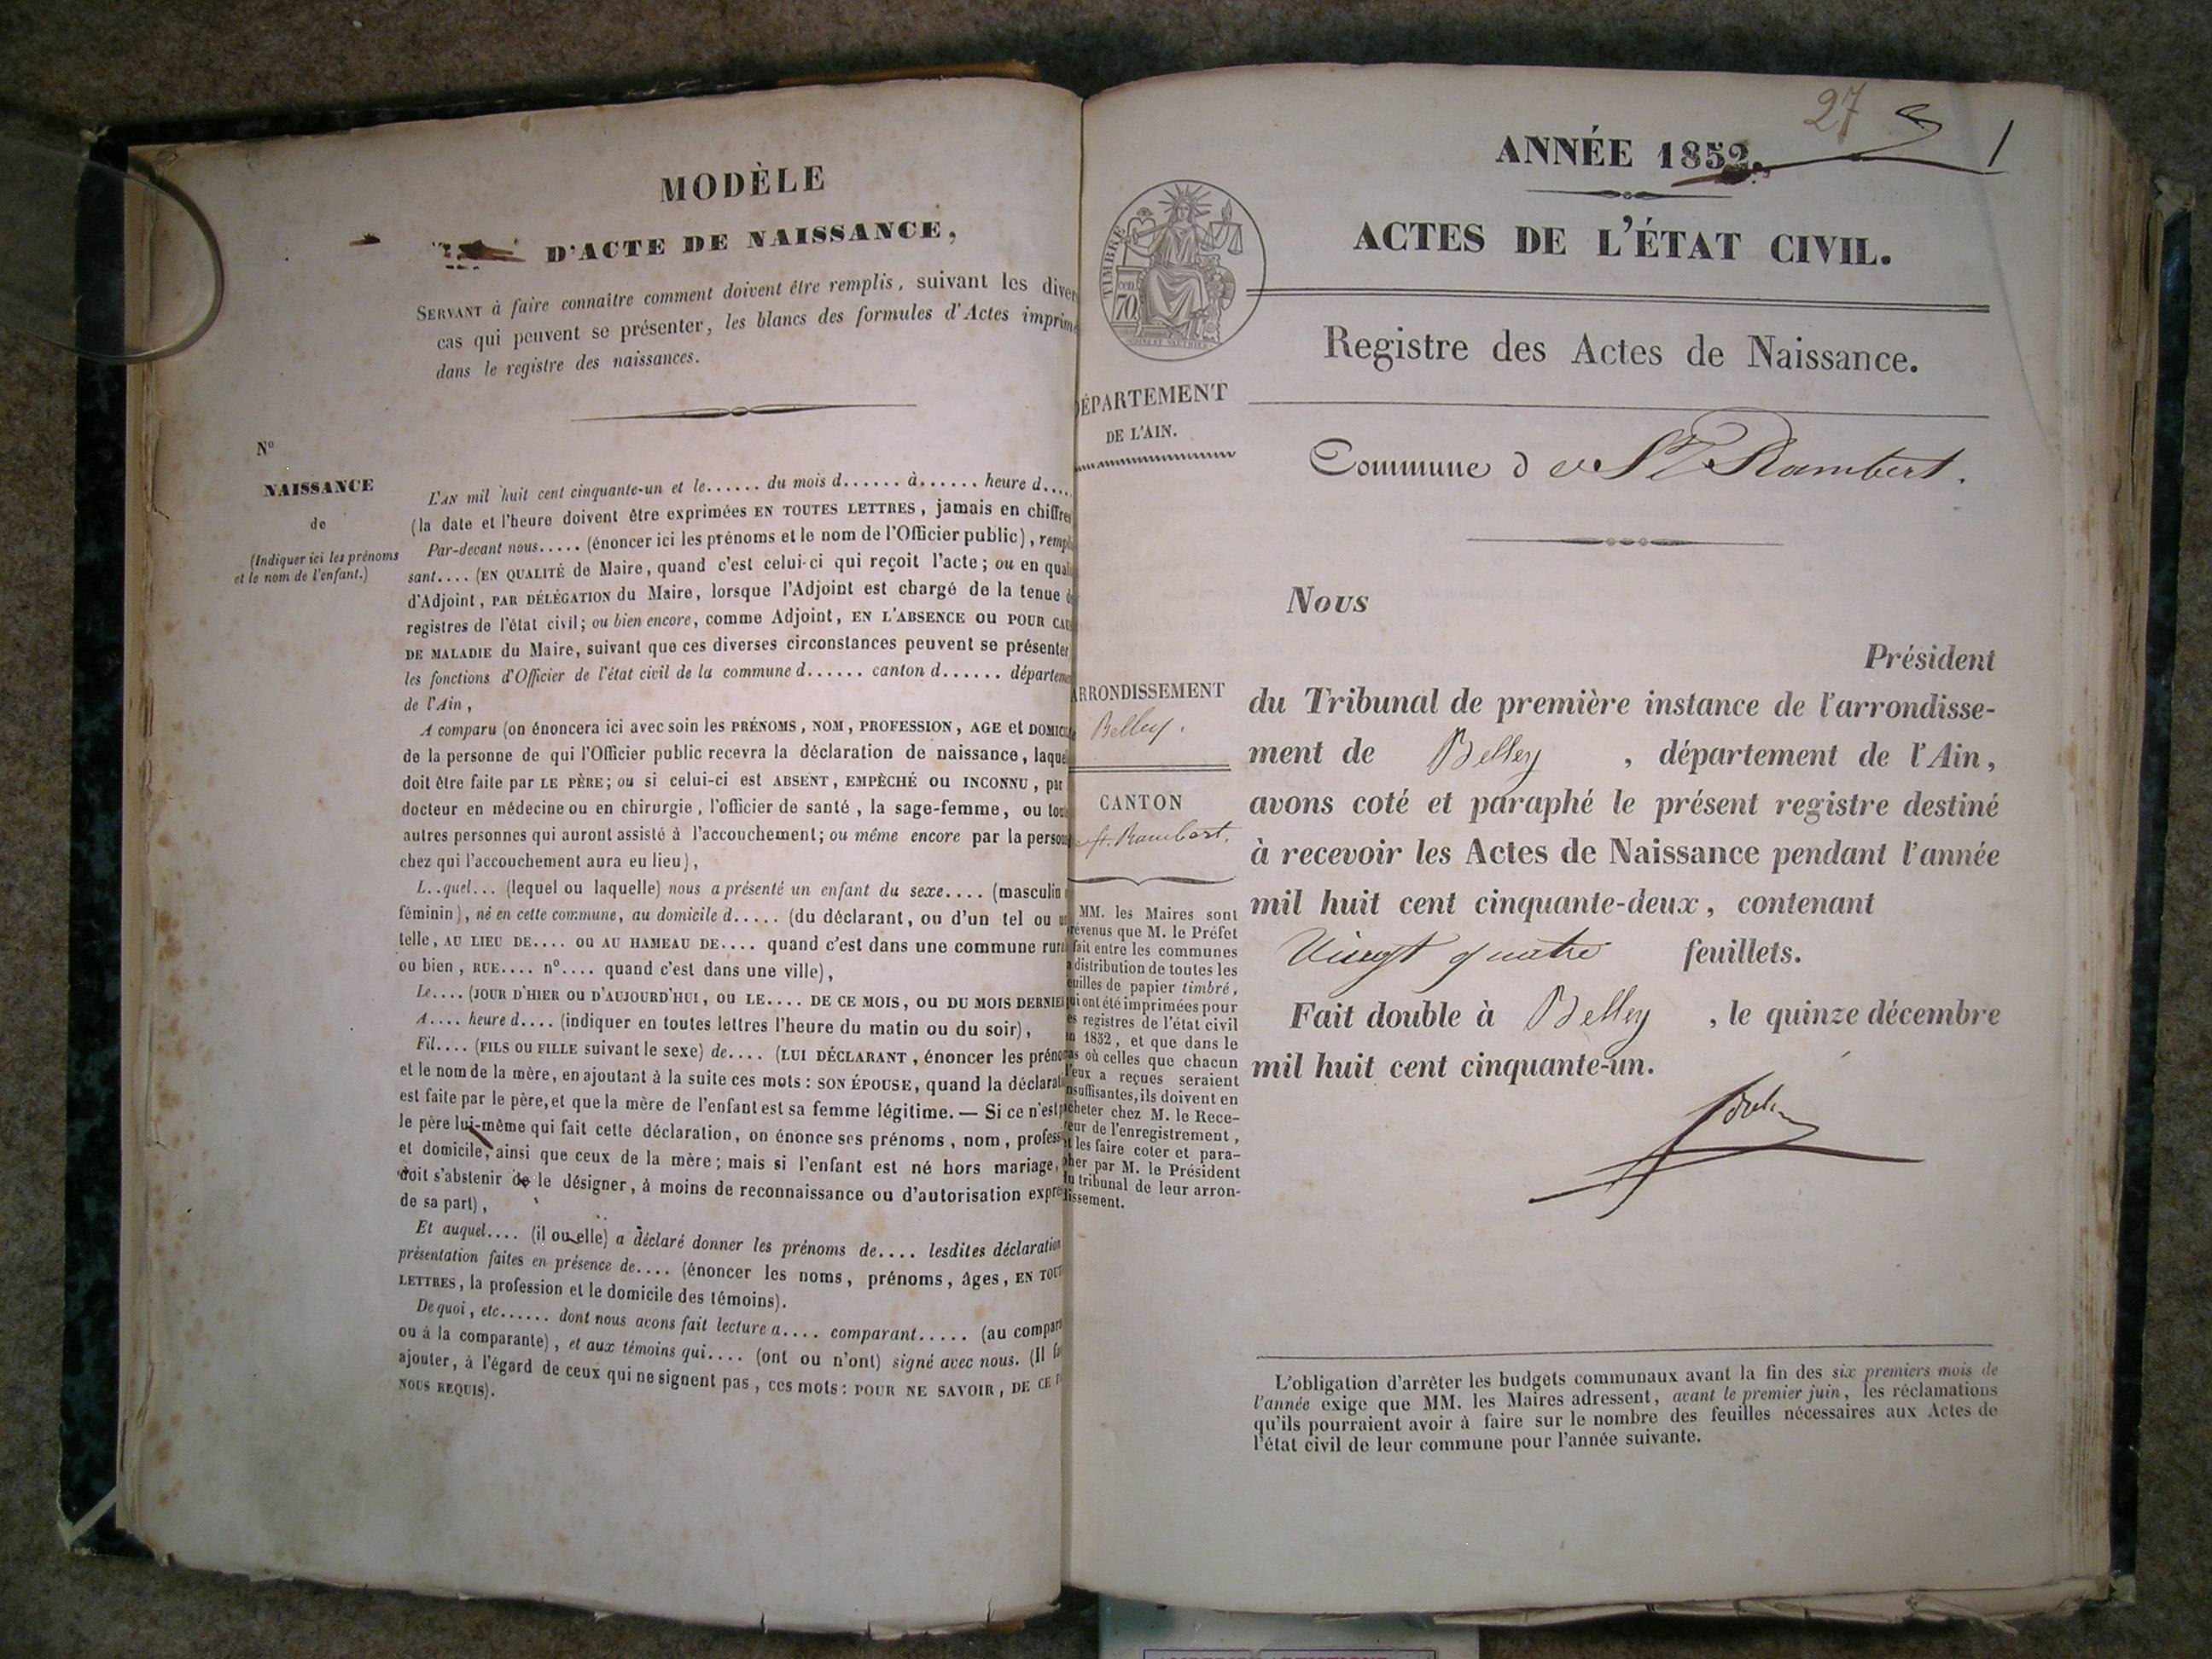 MODÈLE
D'ACTE DE NAISSANCE,
SERVANT à faire connaître comment doivent être remplis, suivant les diver
cas qui peuvent se présenter, les blancs des formules d'Actes imprimé
dans le registre des naissances.
N°
NAISSANCE
de
(Indiquer ici les prénoms
et le nom de l'enfant.)
L'AN mil huit cent cinquante-un et le...... du mois d...... à...... heure d....
(la date et l'heure doivent être exprimées EN TOUTES LETTRES, jamais en chiffres
Par-devant nous..... (énoncer ici les prénoms et le nom de l'Officier public), rempl
sant.... (EN QUALITÉ de Maire, quand c'est celui-ci qui reçoit l'acte; ou en qual
d'Adjoint, PAR DÉLÉGATION du Maire, lorsque l'Adjoint est chargé de la tenue d
registres de l'état civil; ou bien encore, comme Adjoint, EN L'ABSENCE OU POUR CAU
DE MALADIE du Maire, suivant que ces diverses circonstances peuvent se présenter
les fonctions d'Officier de l'état civil de la commune d...... canton d...... départeme
de l'Ain,
A comparu (on énoncera ici avec soin les PRÉNOMS, NOM, PROFESSION, AGE et DOMICI
de la personne de qui l'Officier public recevra la déclaration de naissance, laque
doit être faite par LE PÈRE; ou si celui-ci est ABSENT, EMPÊCHÉ OU INCONNU, par
docteur en médecine ou en chirurgie, l'officier de santé, la sage-femme, ou tou
autres personnes qui auront assisté à l'accouchement; ou même encore par la person
chez qui l'accouchement aura eu lieu),
L..quel... (lequel ou laquelle) nous a présenté un enfant du sexe.... (masculin
féminin), né en cette commune, au domicile d..... (du déclarant, ou d'un tel ou
telle, AU LIEU DE.... OU AU HAMEAU DE.... quand c'est dans une commune rura
ou bien, RUE.... n°.... quand c'est dans une ville),
Le.... (JOUR D'HIER OU D'AUJOURD'HUI, OU LE.... DE CE MOIS, OU DU MOIS DERNIE
A.... heure d.... (indiquer en toutes lettres l'heure du matin ou du soir),
Fil.... (FILS OU FILLE suivant le sexe) de.... (LUI DÉCLARANT, énoncer les préno
et le nom de la mère, en ajoutant à la suite ces mots: SON ÉPOUSE, quand la déclarati
est faite par le père, et que la mère de l'enfant est sa femme légitime. — Si ce n'est p
le père lui-même qui fait cette déclaration, on énonce ses prénoms, nom, professi
et domicile, ainsi que ceux de la mère; mais si l'enfant est né hors mariage,
doit s'abstenir de le désigner, à moins de reconnaissance ou d'autorisation expre
de sa part),
Et auquel.... (il ou elle) a déclaré donner les prénoms de.... lesdites déclaration
présentation faites en présence de.... (énoncer les noms, prénoms, âges, EN TOUT
LETTRES, la profession et le domicile des témoins).
De quoi, etc...... dont nous avons fait lecture a.... comparant..... (au compar
ou à la comparante), et aux témoins qui.... (ont ou n'ont) signé avec nous. (Il fa
ajouter, à l'égard de ceux qui ne signent pas, ces mots: POUR NE SAVOIR, DE CE
NOUS REQUIS).
27
1
ANNÉE 1852.
ACTES DE L'ÉTAT CIVIL.
TIMBRE
70
Registre des Actes de Naissance.
DÉPARTEMENT
DE L'AIN.
Commune de St Rambert.
Nous
Président
du Tribunal de première instance de l'arrondisse-
ment de Belley, département de l'Ain,
avons coté et paraphé le présent registre destiné
à recevoir les Actes de Naissance pendant l'année
mil huit cent cinquante-deux, contenant
Vingt quatre feuillets.
Fait double à Belley, le quinze décembre
mil huit cent cinquante-un.
ARRONDISSEMENT
Belley.
CANTON
St. Rambert.
MM. les Maires sont
révenus que M. le Préfet
fait entre les communes
a distribution de toutes les
euilles de papier timbré,
ui ont été imprimées pour
es registres de l'état civil
n 1852, et que dans le
as où celles que chacun
'eux a reçues seraient
nsuffisantes, ils doivent en
cheter chez M. le Rece-
eur de l'enregistrement,
t les faire coter et para-
her par M. le Président
u tribunal de leur arron-
issement.
L'obligation d'arrêter les budgets communaux avant la fin des six premiers mois de
l'année exige que MM. les Maires adressent, avant le premier juin, les réclamations
qu'ils pourraient avoir à faire sur le nombre des feuilles nécessaires aux Actes de
l'état civil de leur commune pour l'année suivante.